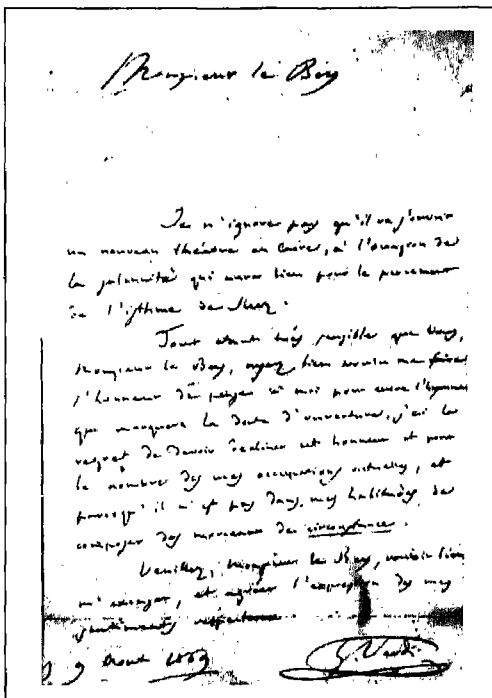 Monsieur le Bey
Je n'ignore pas qu'il va s'ouvrir
un nouveau théatre au Caire, à l'occasion de
la solennité qui aura lieu pour le percement
de l'isthme de Suez.
Tout étant très sensible que Vous,
Monsieur le Bey, ayez bien voulu me faire
l'honneur de penser à moi pour écrire l'hymne
qui marquera la date d'ouverture, j'ai le
regret de devoir décliner cet honneur et pour
le nombre de mes occupations actuelles, et
parcequ'il n'est pas dans mes habitudes de
composer des morceaux de circonstance.
Veuillez, Monsieur le Bey, vouloir bien
m'excuser, et agréer l'expression de mes
sentiments
9 Aout 1869 G. Verdi